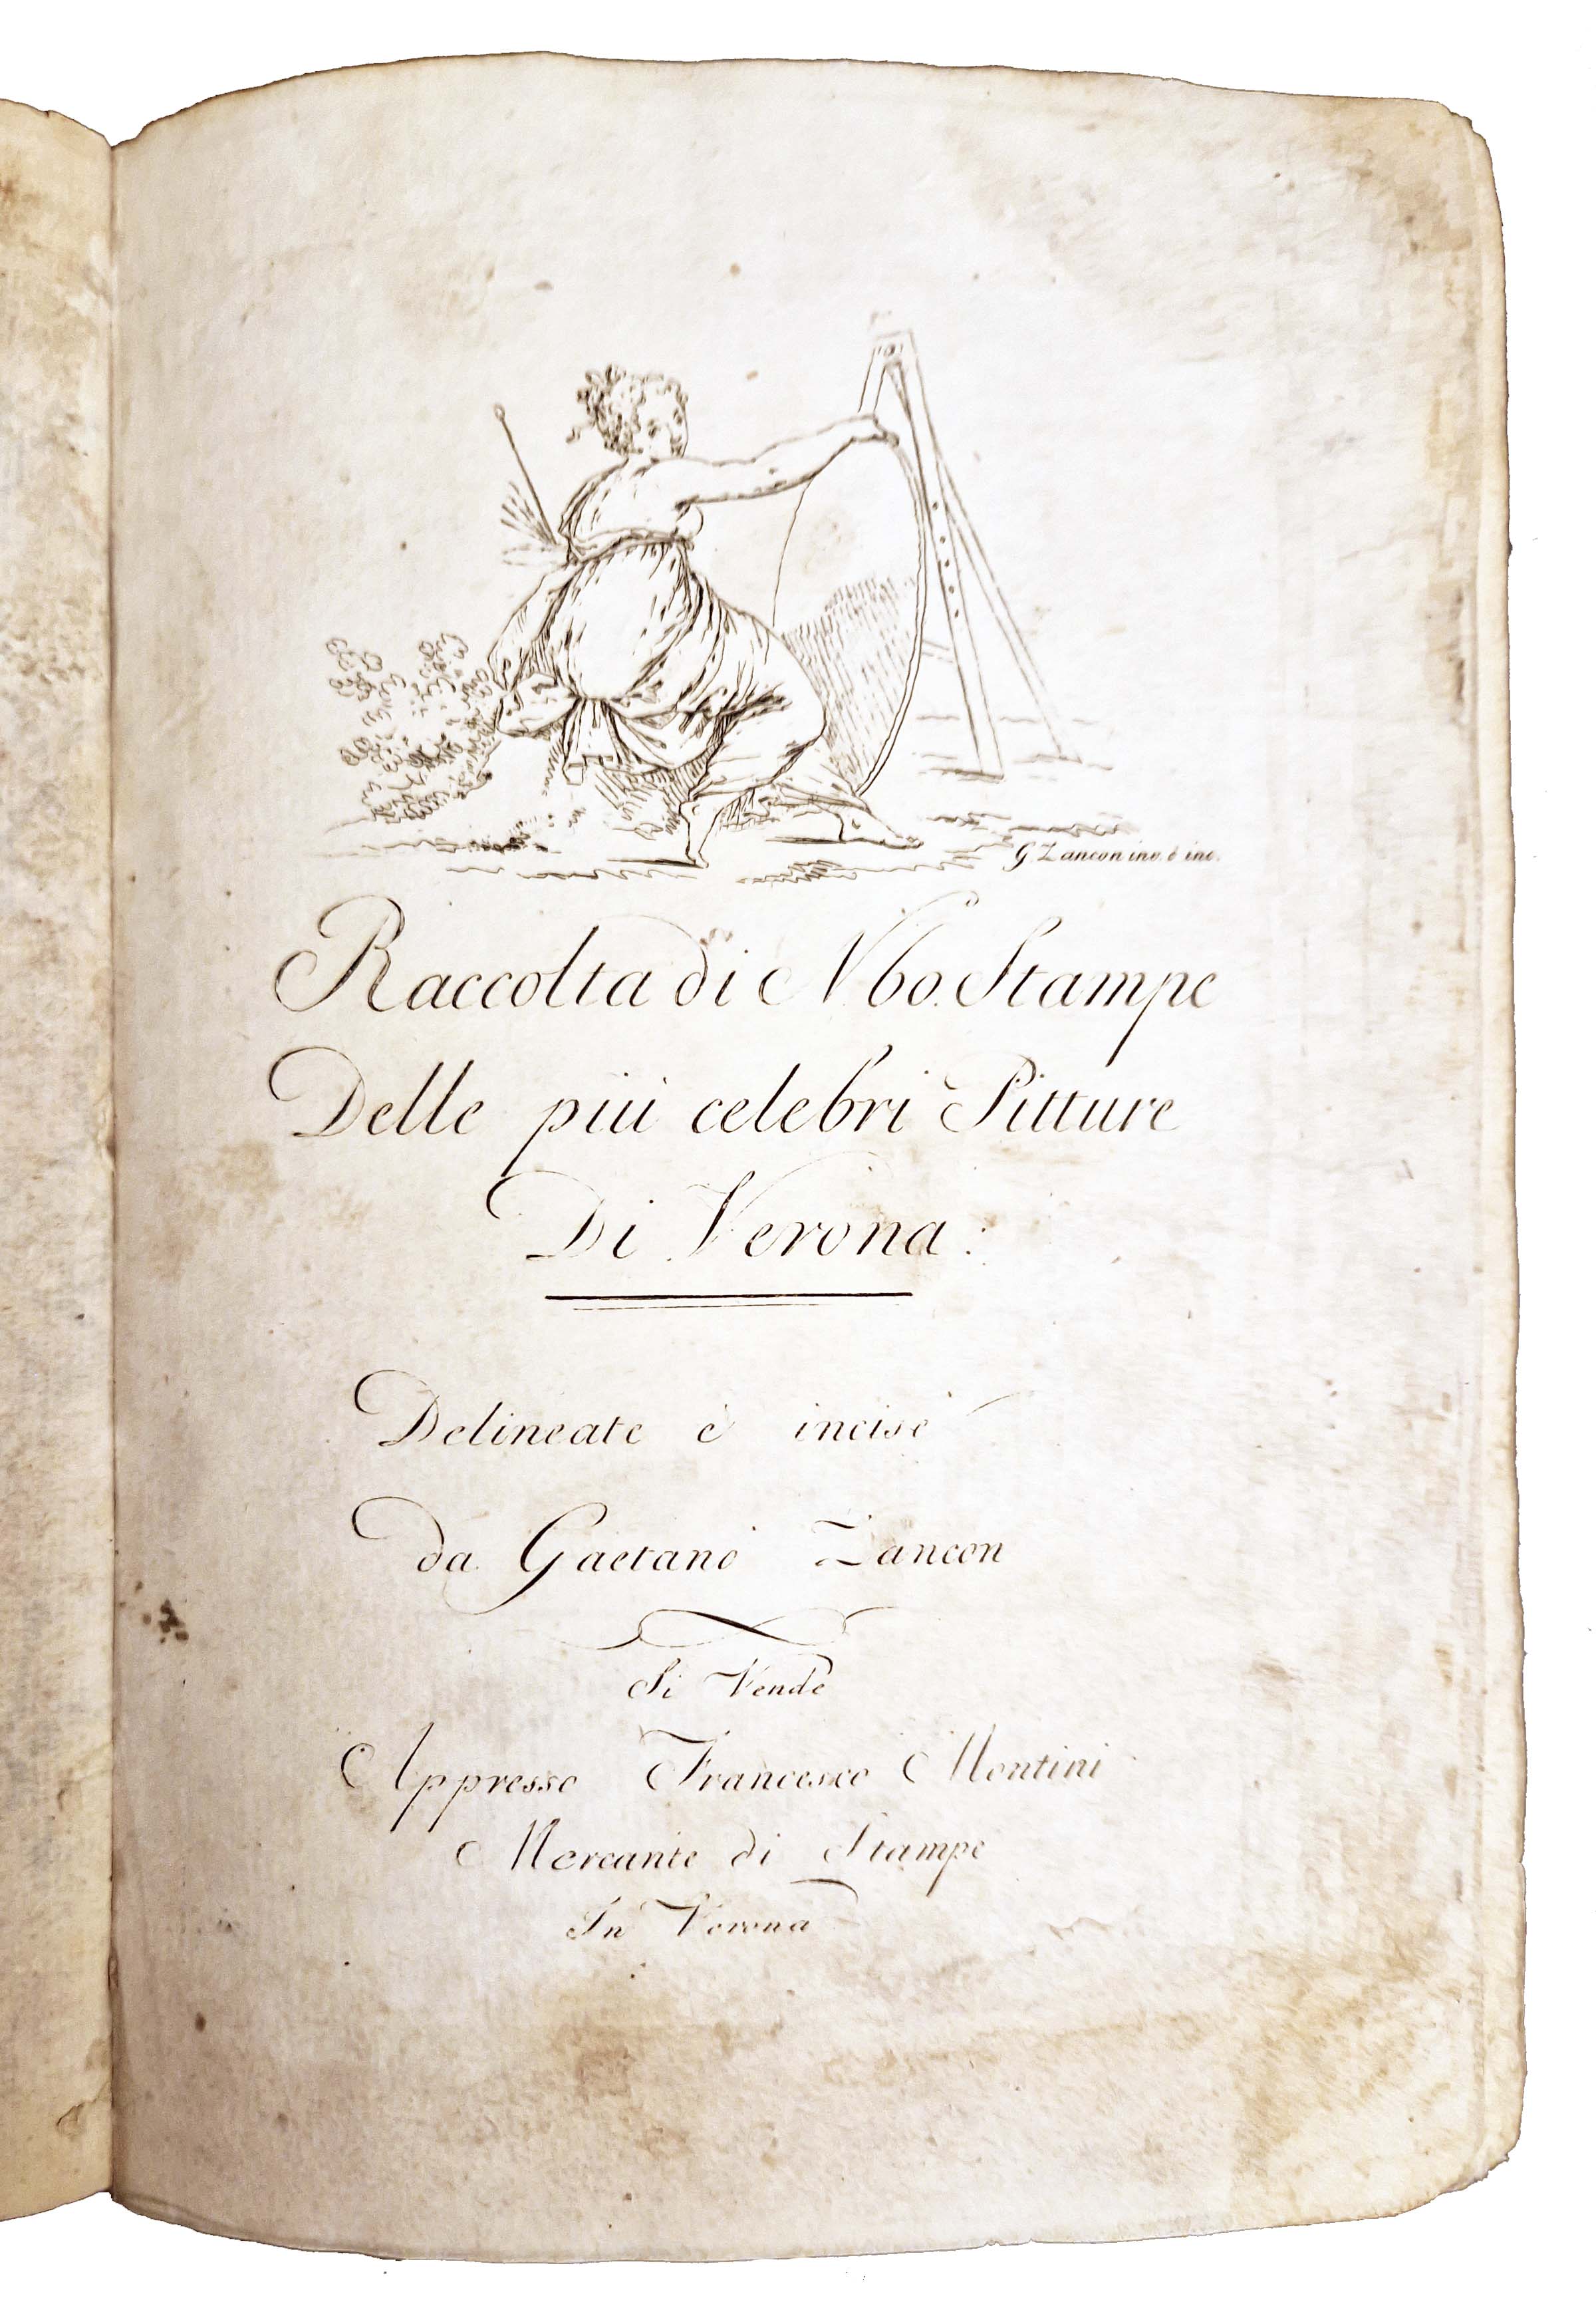 G Zancon inv. è inc.
Raccolta di N 60. Stampe
Delle più celebri Pitture
Di Verona:
Delineate è incise
da Gaetano Zancon
Si Vende
Appresso Francesco Montini
Mercante di Stampe
In Verona